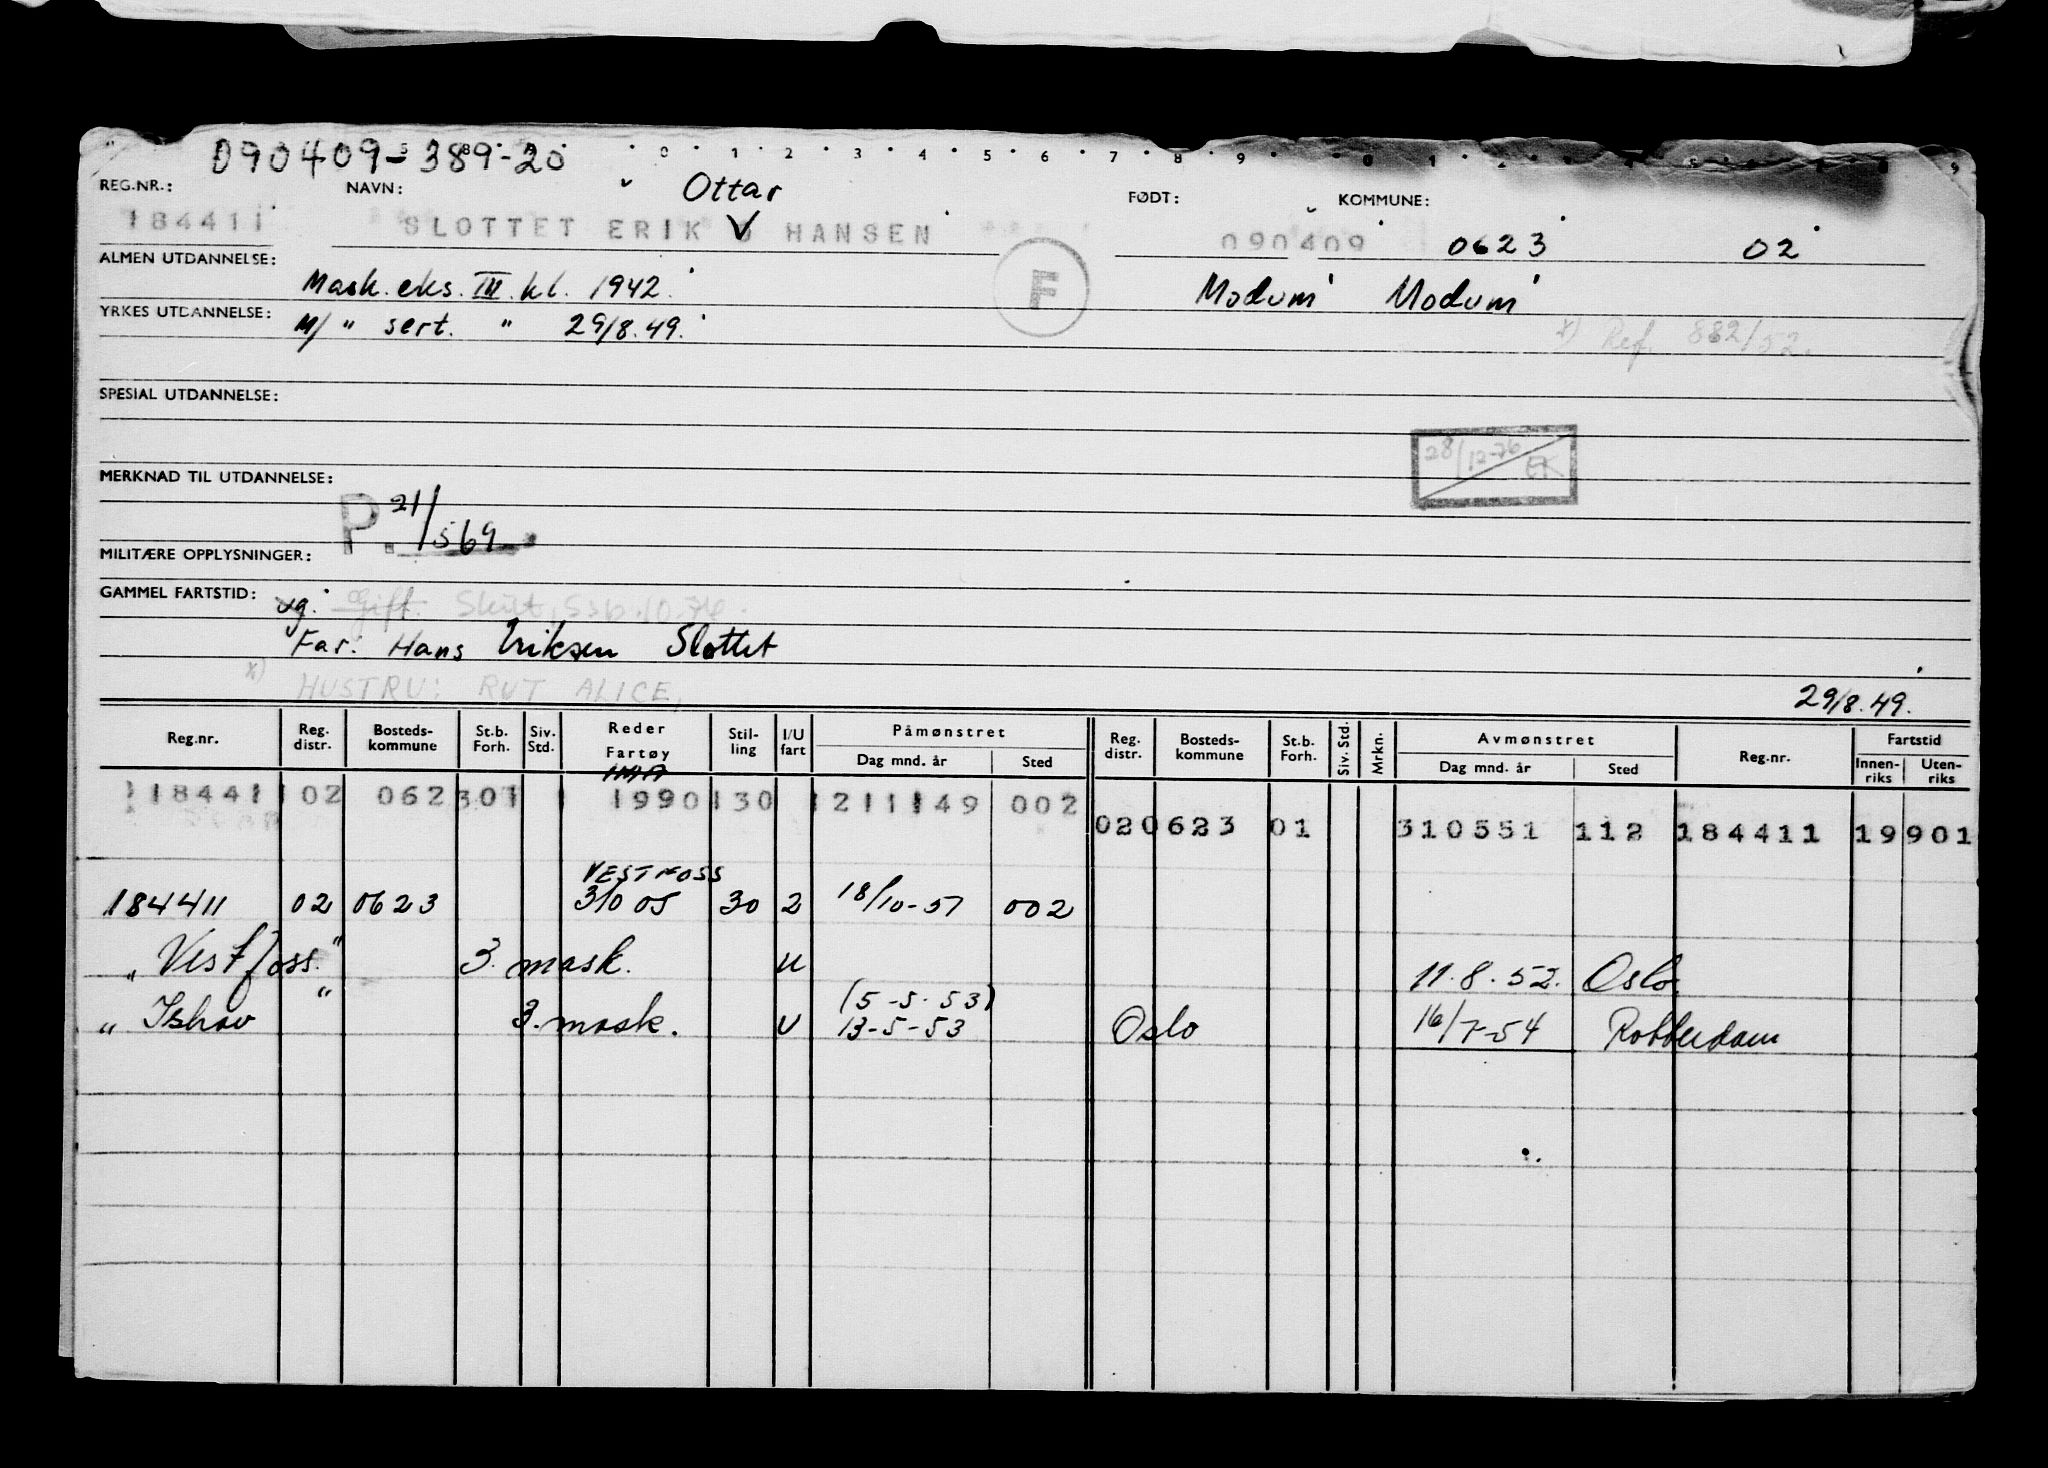 090409-389-20
0 1 2 3 4 5 6 7 8 9 0 1 2
REG.NR.: NAVN: Ottar FØDT: KOMMUNE:
184411 SLOTTET ERIK HANSEN 090409 0623 02
ALMEN UTDANNELSE: Mask. eks. III. kl. 1942. F Modum Modum
YRKES UTDANNELSE: M/ " sert. " 29/8.49. x) Ref. 882/52.
SPESIAL UTDANNELSE:
28/12-76 EK
MERKNAD TIL UTDANNELSE:
P. 21/569
MILITÆRE OPPLYSNINGER:
GAMMEL FARTSTID: ug. Gift. Skilt,
Far: Hans Eriksen Slottet
x) HUSTRU: RUT ALICE,
29/8.49.
Reg.nr. Reg. distr. Bosteds-kommune St.b. Forh. Siv. Std. Reder Fartøy Stil-ling I/U fart Påmønstret Dag mnd. år Sted Reg. distr. Bosteds-kommune St.b. Forh. Siv. Std. Mrkn. Avmønstret Dag mnd. år Sted Reg.nr. Fartstid Innen-riks Uten-riks
118441 102 062 301 1990 130 1211149 002
020623 01 310551 112 184411 19901
VESTFOSS
184411 02 0623 31005 30 2 18/10-51 002
"Vestfoss." 3. mask. U 11.8.52. Oslo.
(5-5-53)
"Ishav" 3. mask. U 13-5-53 Oslo 16/7-54 Rotterdam